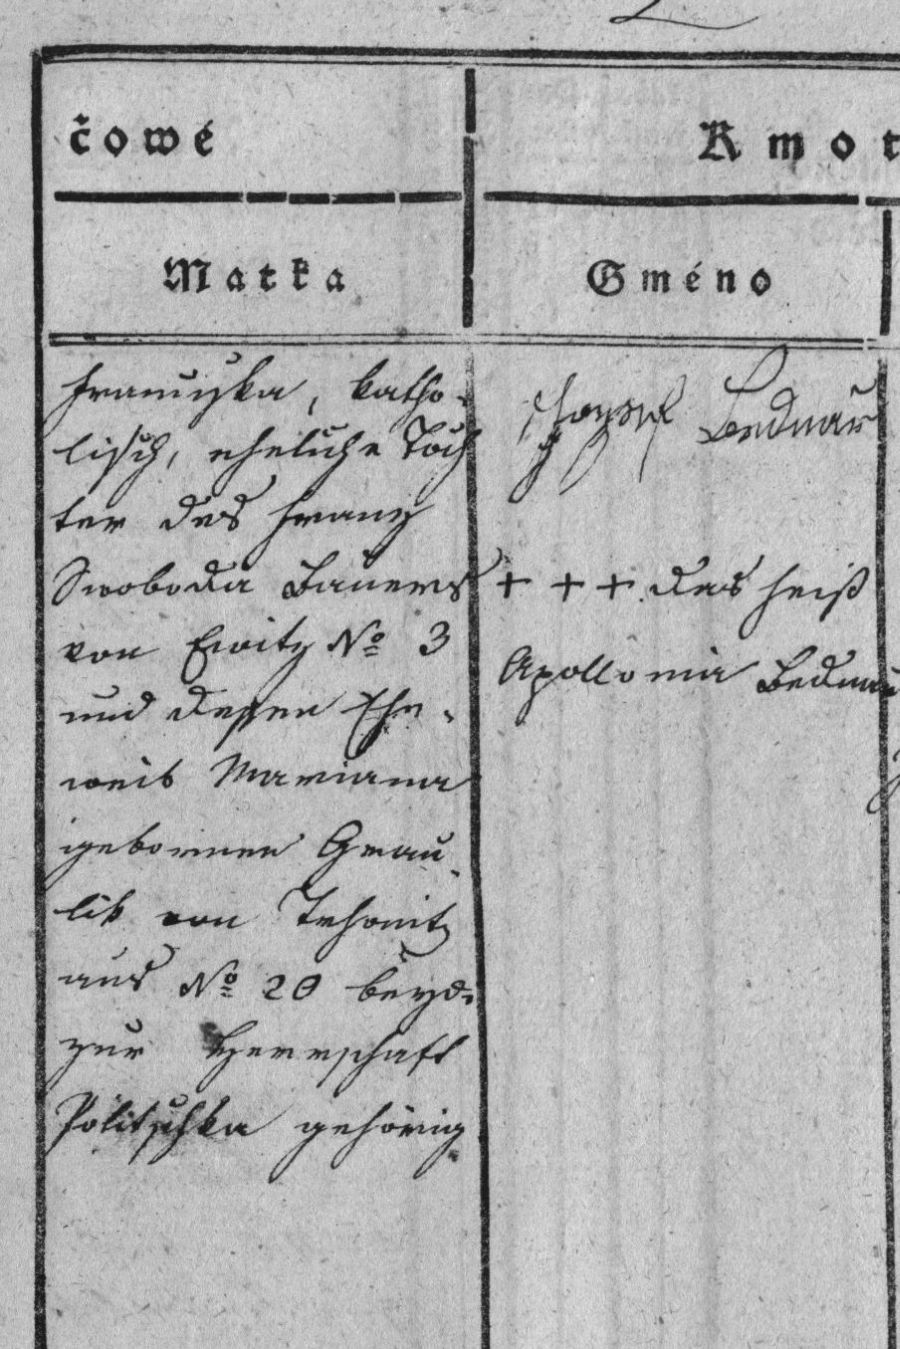 čowé
Kmot
Matka
Gméno
Franciska, katho-
lisch, eheliche Toch
ter des Franz
Swoboda Bauers
von Ewitz No 3
und dessen Ehe-
weib Mariana
gebornen Grau
lik von Tehonitz
aus No 20 beyde
zur Herrschaft
Politschka gehörig
Jozef Bednar
+ + + das heiß
Apollonia Bednar